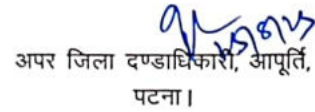 अपर जिला दण्डाधिकारी, आपूर्ति,
पटना।